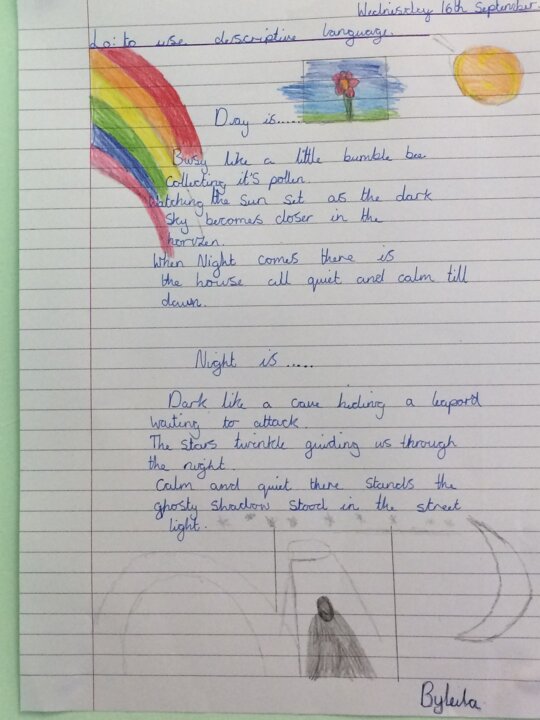 Wednesday 16th September.
Lo: to use descriptive language.
Day is......
Busy like a little bumble bee
collecting it's pollen
watching the sun set as the dark
sky becomes closer in the
horizen.
When Night comes there is
the house all quiet and calm till
dawn.
Night is.....
Dark like a cave hiding a leapord
waiting to attack.
The stars twinkle guiding us through
the night.
Calm and quiet there stands the
ghosty shadow stood in the street
light.
By Leila